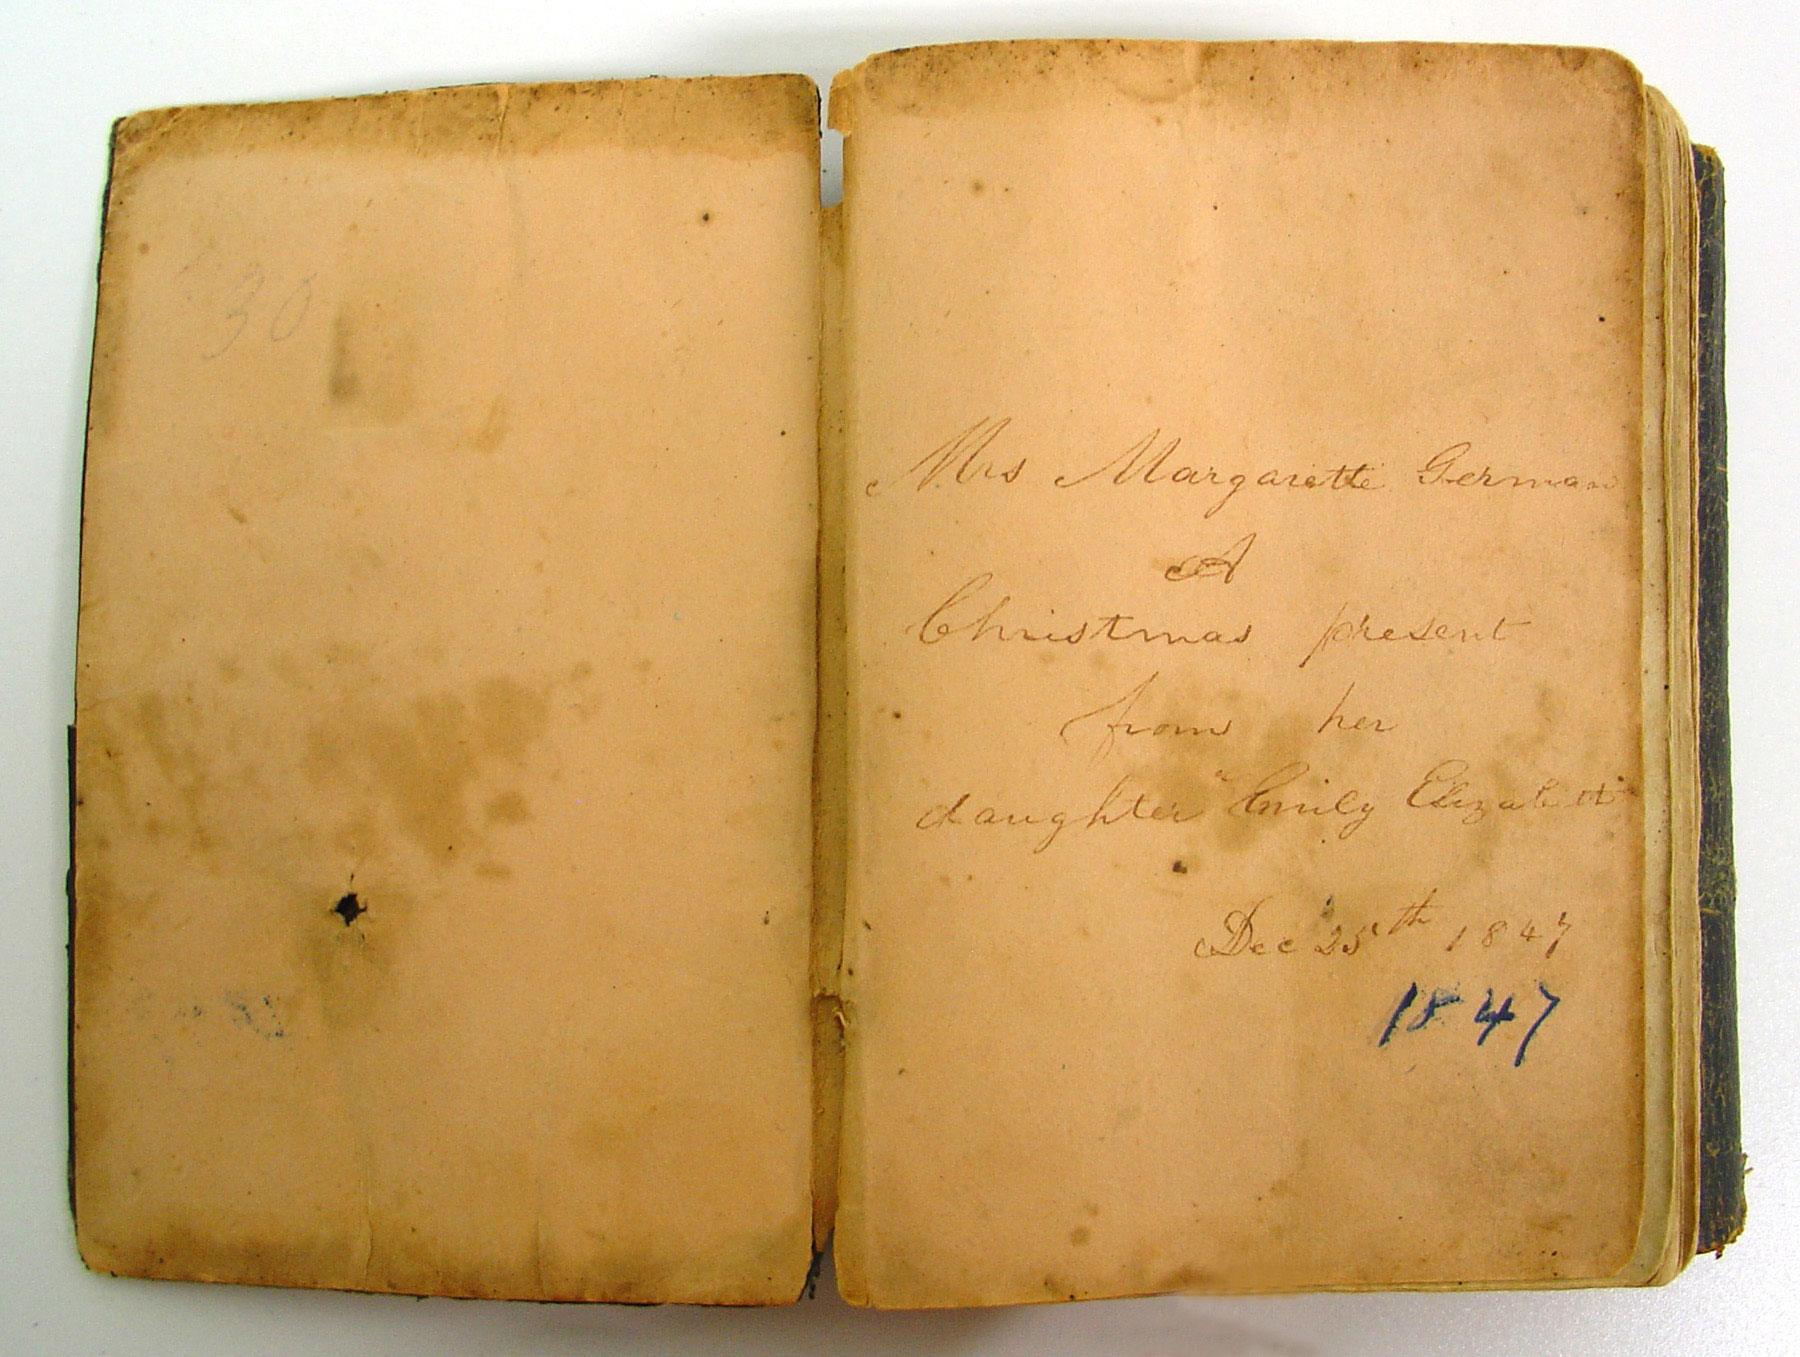 30
Mrs Margarette German
A
Christmas present
from her
daughter "Emily Elizabeth"
Dec 25th 1847
1847